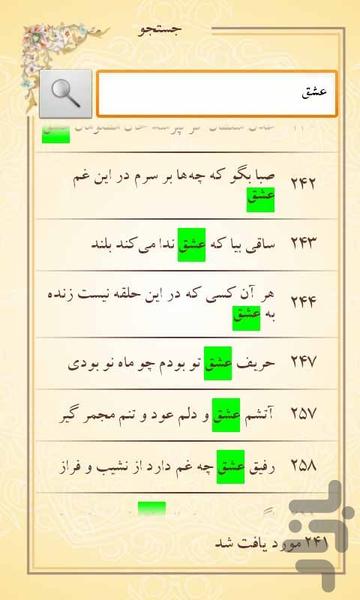 جستجو
عشق
۲۴۲ صبا بگو که چه‌ها بر سرم در این غم
عشق
۲۴۳ ساقی بیا که عشق ندا می‌کند بلند
۲۴۴ هر آن کسی که در این حلقه نیست زنده
به عشق
۲۴۷ حریف عشق تو بودم چو ماه نو بودی
۲۵۷ آتشم عشق و دلم عود و تنم مجمر گیر
۲۵۸ رفیق عشق چه غم دارد از نشیب و فراز
۲۴۱ مورد یافت شد
بازار